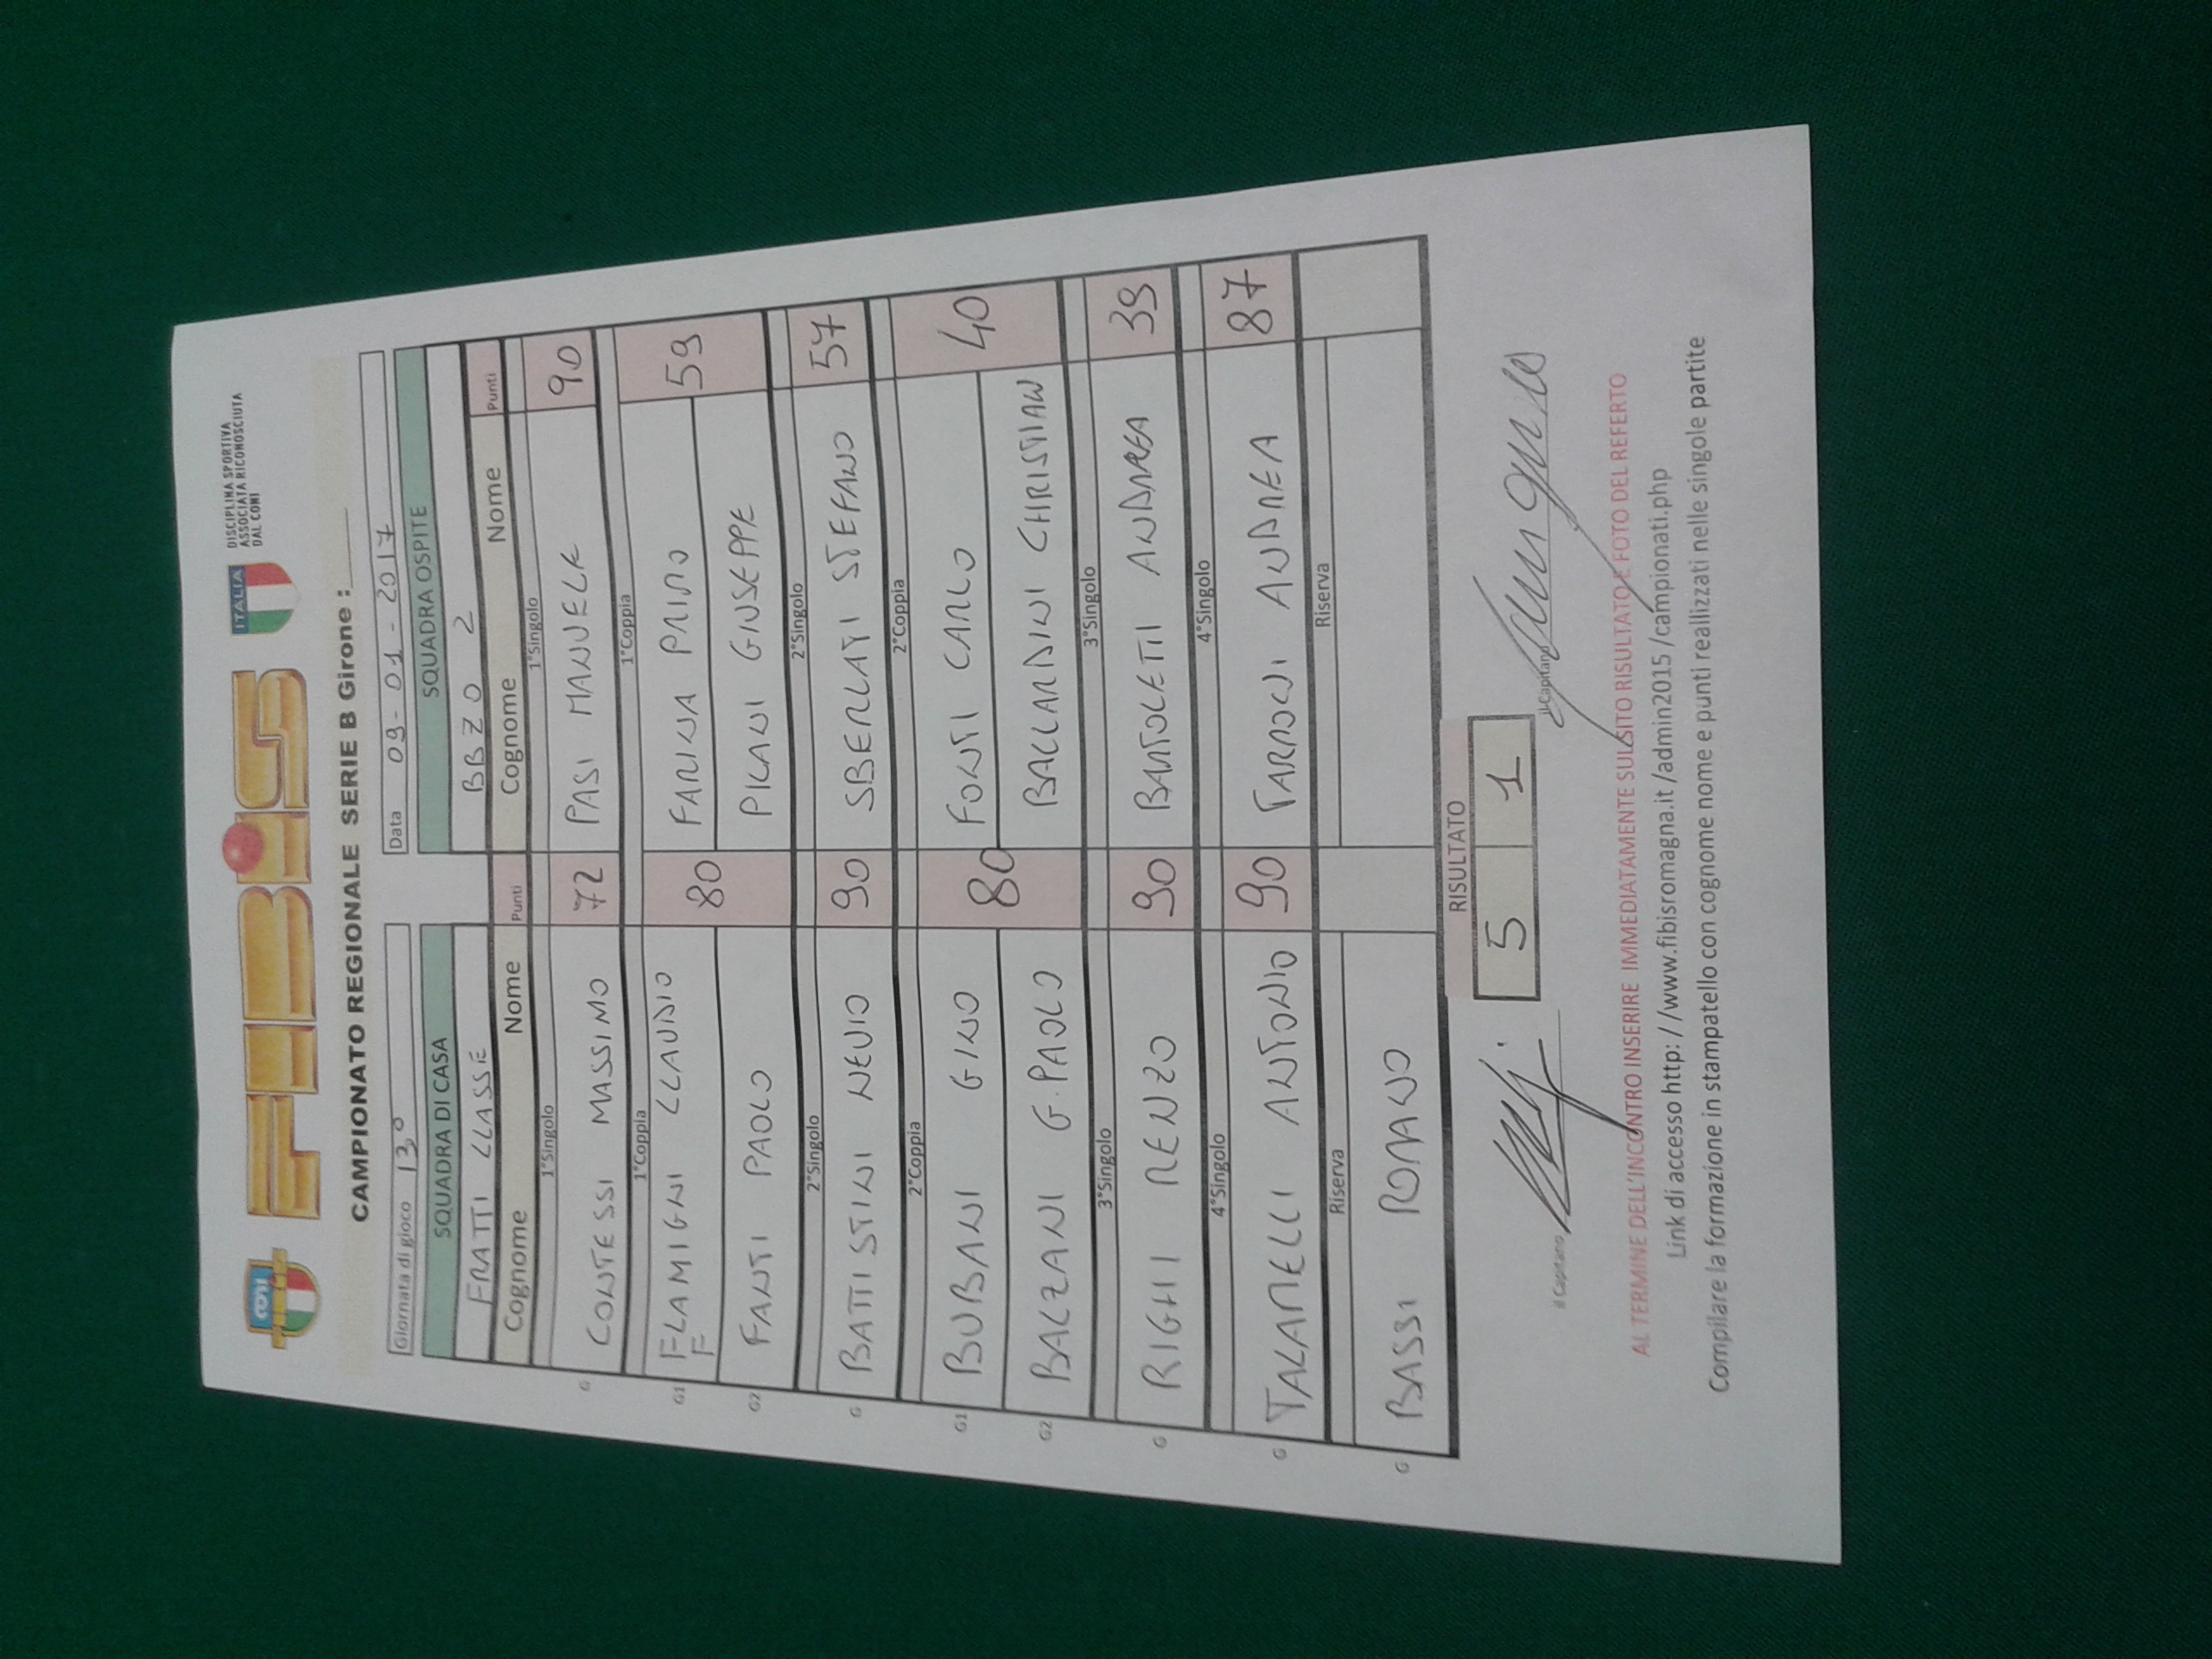 CONI
FIBiS
ITALIA
DISCIPLINA SPORTIVA
ASSOCIATA RICONOSCIUTA
DAL CONI
CAMPIONATO REGIONALE SERIE B Girone :
Giornata di gioco 13° Data 03-01-2017
SQUADRA DI CASA SQUADRA OSPITE
FRATTI CLASSE BBZO 2
Cognome Nome Punti Cognome Nome Punti
1°Singolo 1°Singolo
G CONTESSI MASSIMO 72 PASI MANUELE 90
1°Coppia 1°Coppia
G1 FLAMIGNI CLAUDIO 80 FARINA PRIMO 59
F
G2 FANTI PAOLO PILANI GIUSEPPE
2°Singolo 2°Singolo
G BATTISTINI NEVIO 90 SBERLATI STEFANO 57
2°Coppia 2°Coppia
G1 BUBANI GINO 80 FONTI CARLO 40
G2 BALZANI G. PAOLO BALLARDINI CHRISTIAN
3°Singolo 3°Singolo
G RIGHI RENZO 90 BARTOLETTI ANDREA 39
4°Singolo 4°Singolo
G TALAMELLI ANTONIO 90 TARRONI ANDREA 87
Riserva Riserva
G BASSI ROMANO
RISULTATO
5 1
il Capitano il Capitano
AL TERMINE DELL'INCONTRO INSERIRE IMMEDIATAMENTE SUL SITO RISULTATO E FOTO DEL REFERTO
Link di accesso http: //www.fibisromagna.it /admin2015 /campionati.php
Compilare la formazione in stampatello con cognome nome e punti reallizzati nelle singole partite